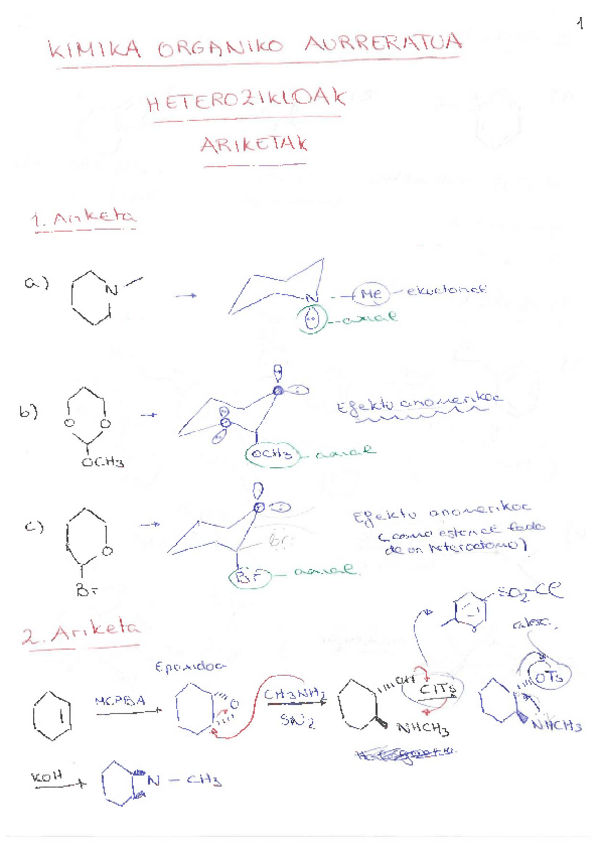 1
KIMIKA ORGANIKO AURRERATUA
HETEROZIKLOAK
ARIKETAK
1. Ariketa
a) N → N Me - ekuatorial
axial
b) O O OCH3 → OCH3 - axial
Efektu anomerikoa
c) O Br → Br - axial
Efektu anomerikoa
(como esterica lado
de un heteroátomo)
2. Ariketa
SO2-Cl
Epoxidoa
MCPBA O CH3NH2 SN2 OH ClTs NHCH3 OTs NHCH3
KOH N - CH3